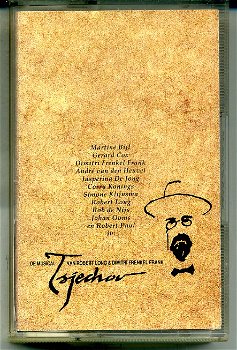 Martine Bijl
Gerard Cox
Dimitri Frenkel Frank
André van den Heuvel
Jasperina De Jong
Conny Konings
Simone Kleinsma
Robert Long
Rob de Nijs
Johan Ooms
en Robert Paul
in:
DE MUSICAL VAN ROBERT LONG & DIMITRI FRENKEL FRANK
Tsjechov